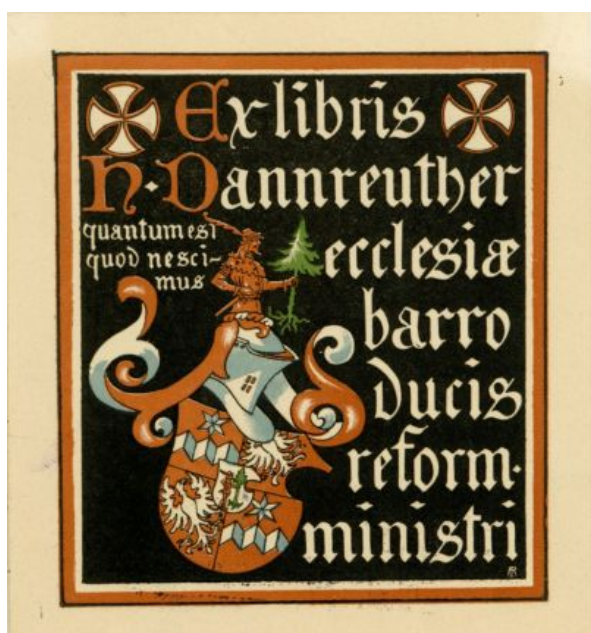 Ex libris
H. Dannreuther
quantum est
quod nesci-
mus
ecclesiæ
barro
ducis
reform.
ministri